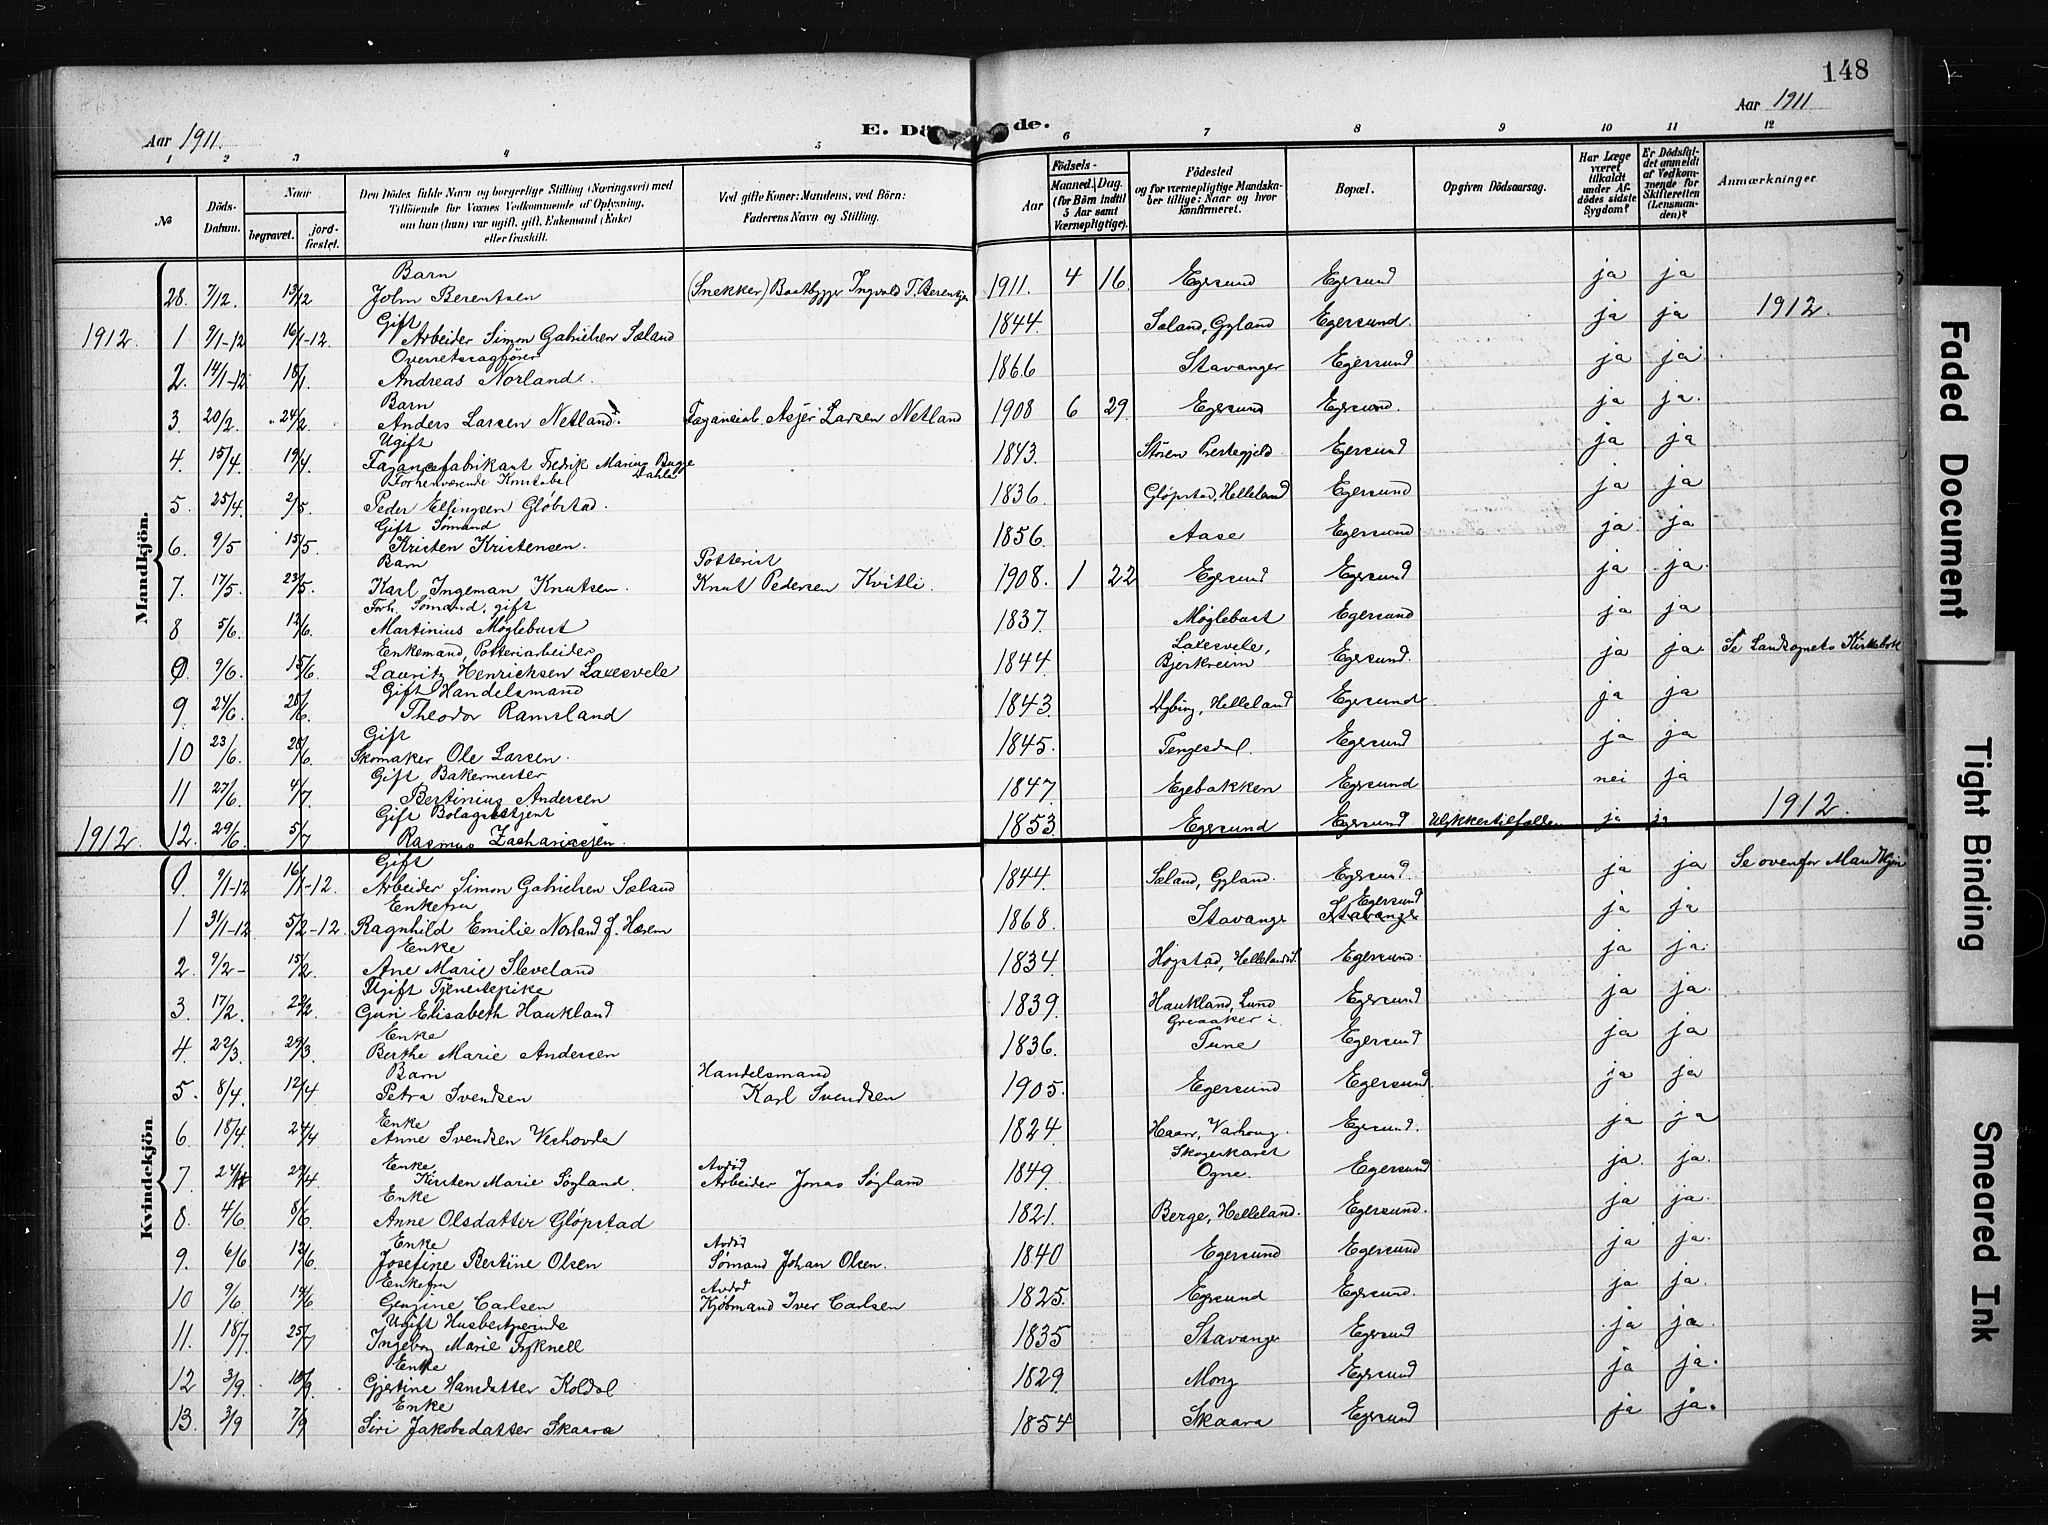 148
Aar 1911.
E. Dö de.
Aar 1911
1 2 3 4 5 6 7 8 9 10 11 12
№
Döds-Datum.
Naar
begravet.
jordfæstet.
Den Dödes fulde Navn og borgerlige Stilling (Næringsvei) med
Tilföiende for Voxnes Vedkommende af Oplysning,
om han (hun) var ugift, gift, Enkemand (Enke)
eller fraskilt.
Ved gifte Koner: Mandens, ved Börn:
Faderens Navn og Stilling.
Födsels-
Aar
Maaned. Dag.
(for Börn indtil
5 Aar samt
Værnepligtige).
Födested
og for værnepligtige Mandska-
ber tillige: Naar og hvor
konfirmeret.
Bopæl.
Opgiven Dödsaarsag.
Har Læge
været
tilkaldt
under Af-
dödes sidste
Sygdom?
Er Dödsfal-
det anmeldt
af Vedkom-
mende for
Skifteretten
(Lensman-
den)?
Anmærkninger
Mandkjön.
Barn
28. 7/12. 13/12 John Berentsen (Snekker) Baatbygger Ingvald T. Berentsen 1911. 4 16 Egersund Egersund ja ja
1912 1912.
Gift
1 9/1-12 16/1-12. Arbeider Simon Gabrielsen Sæland 1844. Sæland, Gyland Egersund. ja ja
Overretssagfører
2. 14/1-12 18/1. Andreas Norland. 1866 Stavanger Egersund ja ja
Barn
3. 20/2. 24/2. Anders Larsen Netland. Fagansearb. Asjer Larsen Netland 1908 6 29. Egersund Egersund. ja ja.
Ugift
4. 15/4. 19/4. Fagancefabrikant Fredrik Marius Bugge Dahle 1843. Støren Prestegjeld Egersund ja ja
Forhenværende Konstabel
5. 25/4. 2/5. Peder Ellingsen Gløbstad. 1836 Gløpstad, Helleland Egersund ja ja
Gift Sømand
6. 9/5 15/5. Kristen Kristensen. 1856. Aase Egersund ja ja
Barn Potterist
7. 17/5. 23/5. Karl Ingeman Knutsen. Knut Pedersen Kvitli. 1908. 1 22 Egersund Egersund ja ja.
Forh. Sømand, gift
8 5/6. 12/6. Martinius Møglebust 1837. Møglebust Egersund ja ja
Enkemand, Potteriarbeider
0 9/6. 15/6. Lauritz Henrichsen Laxesvele 1844. Laxesvele, Bjerkreim Egersund. ja ja. Se Landsognets Kirkebok
Gift Handelsmand
9 24/6. 28/6. Theodor Ramsland 1843. Dybing, Helleland Egersund. ja ja
Gift
10 23/6. 28/6. Skomaker Ole Larsen. 1845. Tengesdal. Egersund ja ja
Gift Bakermester
11 27/6. 4/7. Bertinius Andersen 1847. Egebakken Egersund nei ja
Gift Bolagsbetjent
1912 12. 29/6. 5/7 Rasmus Zachariassen. 1853. Egersund Egersund Ulykkestilfælde ja ja 1912.
Kvindekjön
Gift
0. 9/1-12 16/1-12. Arbeider Simon Gabrielsen Sæland 1844. Sæland, Gyland. Egersund. ja ja Se ovenfor Mandkjøn
Enkefru
1 31/1-12 5/2-12. Ragnhild Emilie Norland f. Hæsem 1868. Stavanger Egersund Stavanger ja ja
Enke
2. 9/2- 15/2. Ane Marie Sleveland 1834. Høgstad, Hellelands S. Egersund. ja ja.
Ugift Tjenestepike
3. 17/2. 23/2. Guri Elisabeth Haukland 1839. Haukland, Lund Egersund ja ja.
Enke
4. 22/3. 29/3. Berthe Marie Andersen 1836. Greaaker i Tune Egersund ja ja
Barn Handelsmand
5. 8/4. 12/4 Petra Svendsen Karl Svendsen 1905. Egersund Egersund ja ja
Enke
6. 18/4. 24/4 Anne Svendsen Veshovda 1824. Haar, Varhoug. Egersund. ja ja
Enke Avdød
7. 24/4 29/4. Kirsten Marie Søyland. Arbeider Jonas Søyland 1849. Skogerkaret Ogne. Egersund ja. ja.
Enke
8. 4/6 8/6. Anne Olsdatter Gløpstad 1821. Berge, Helleland. Egersund. ja ja.
Enke Avdød
9. 6/6 12/6. Josefine Bertine Olsen Sømand Johan Olsen. 1840 Egersund Egersund ja ja.
Enkefru Avdød
10 9/6. 14/6 Carlsen Kjøbmand Iver Carlsen 1825. Egersund Egersund. ja ja.
Ugift Husbestyrerinde
11. 18/7. 25/7 Ingeborg Marie Fyknell 1835 Stavanger Egersund ja ja.
Enke
12 3/9. 10/9. Gjertine Hansdatter Koldal 1829. Mong Egersund ja ja.
Enke
13. 3/9 7/9 Siri Jakobsdatter Skaara 1854 Skaara Egersund ja ja.
Faded Document
Tight Binding
Smeared Ink